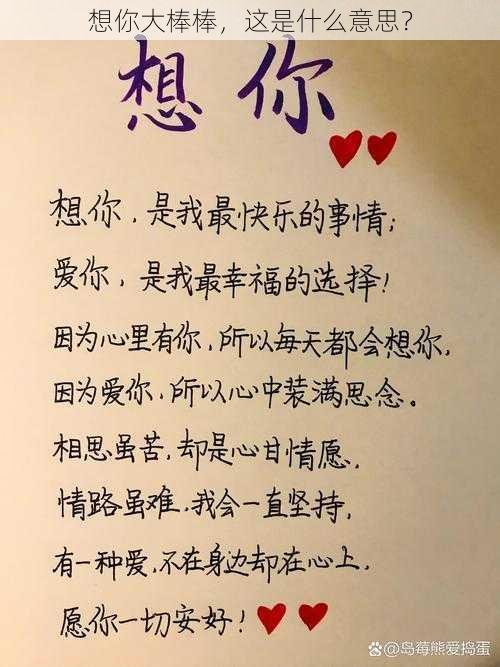 想你大棒棒，这是什么意思？
想你
想你，是我最快乐的事情；
爱你，是我最幸福的选择！
因为心里有你，所以每天都会想你，
因为爱你，所以心中装满思念。
相思虽苦，却是心甘情愿，
情路虽难，我会一直坚持，
有一种爱，不在身边却在心上，
愿你一切安好！
@岛莓熊爱捣蛋